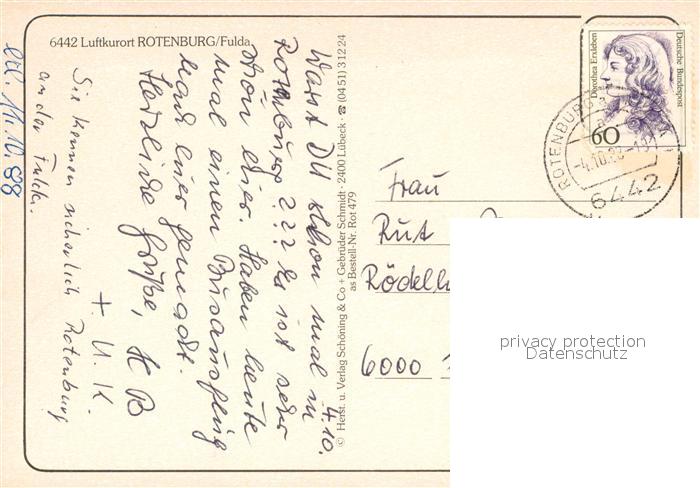 6442 Luftkurort ROTENBURG/Fulda
4.10.
Warst DU schon mal in
Rotenburg ??? Es ist sehr
schön hier. Haben heute
mal einen Busausflug
nach hier gemacht.
Herzliche Grüße,
+ U. K.
Sie kennen sicherlich Rotenburg
an der Fulda.
erl. 11.10.88
© Herst. u. Verlag Schöning & Co + Gebrüder Schmidt · 2400 Lübeck · ☎ (04 51) 3 12 24
as Bestell-Nr. Rot 479
Dorothea Erxleben
Deutsche Bundespost
60
ROTENBURG
-4.10.88
6442
Frau
Rut
Rödelh
6000
privacy protection
Datenschutz